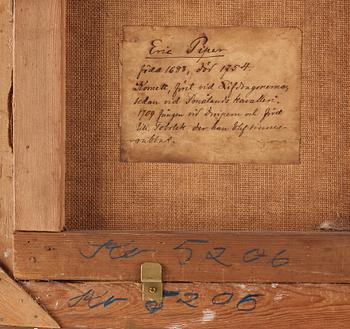 Eric Piper
född 1688, död 1754.
Kornett, först vid Lifdragonerna,
sedan vid Smålands Kavalleri.
1709 fången vid Dnieper och förd
till Tobolsk der han
Kr 5206
Kr 5206